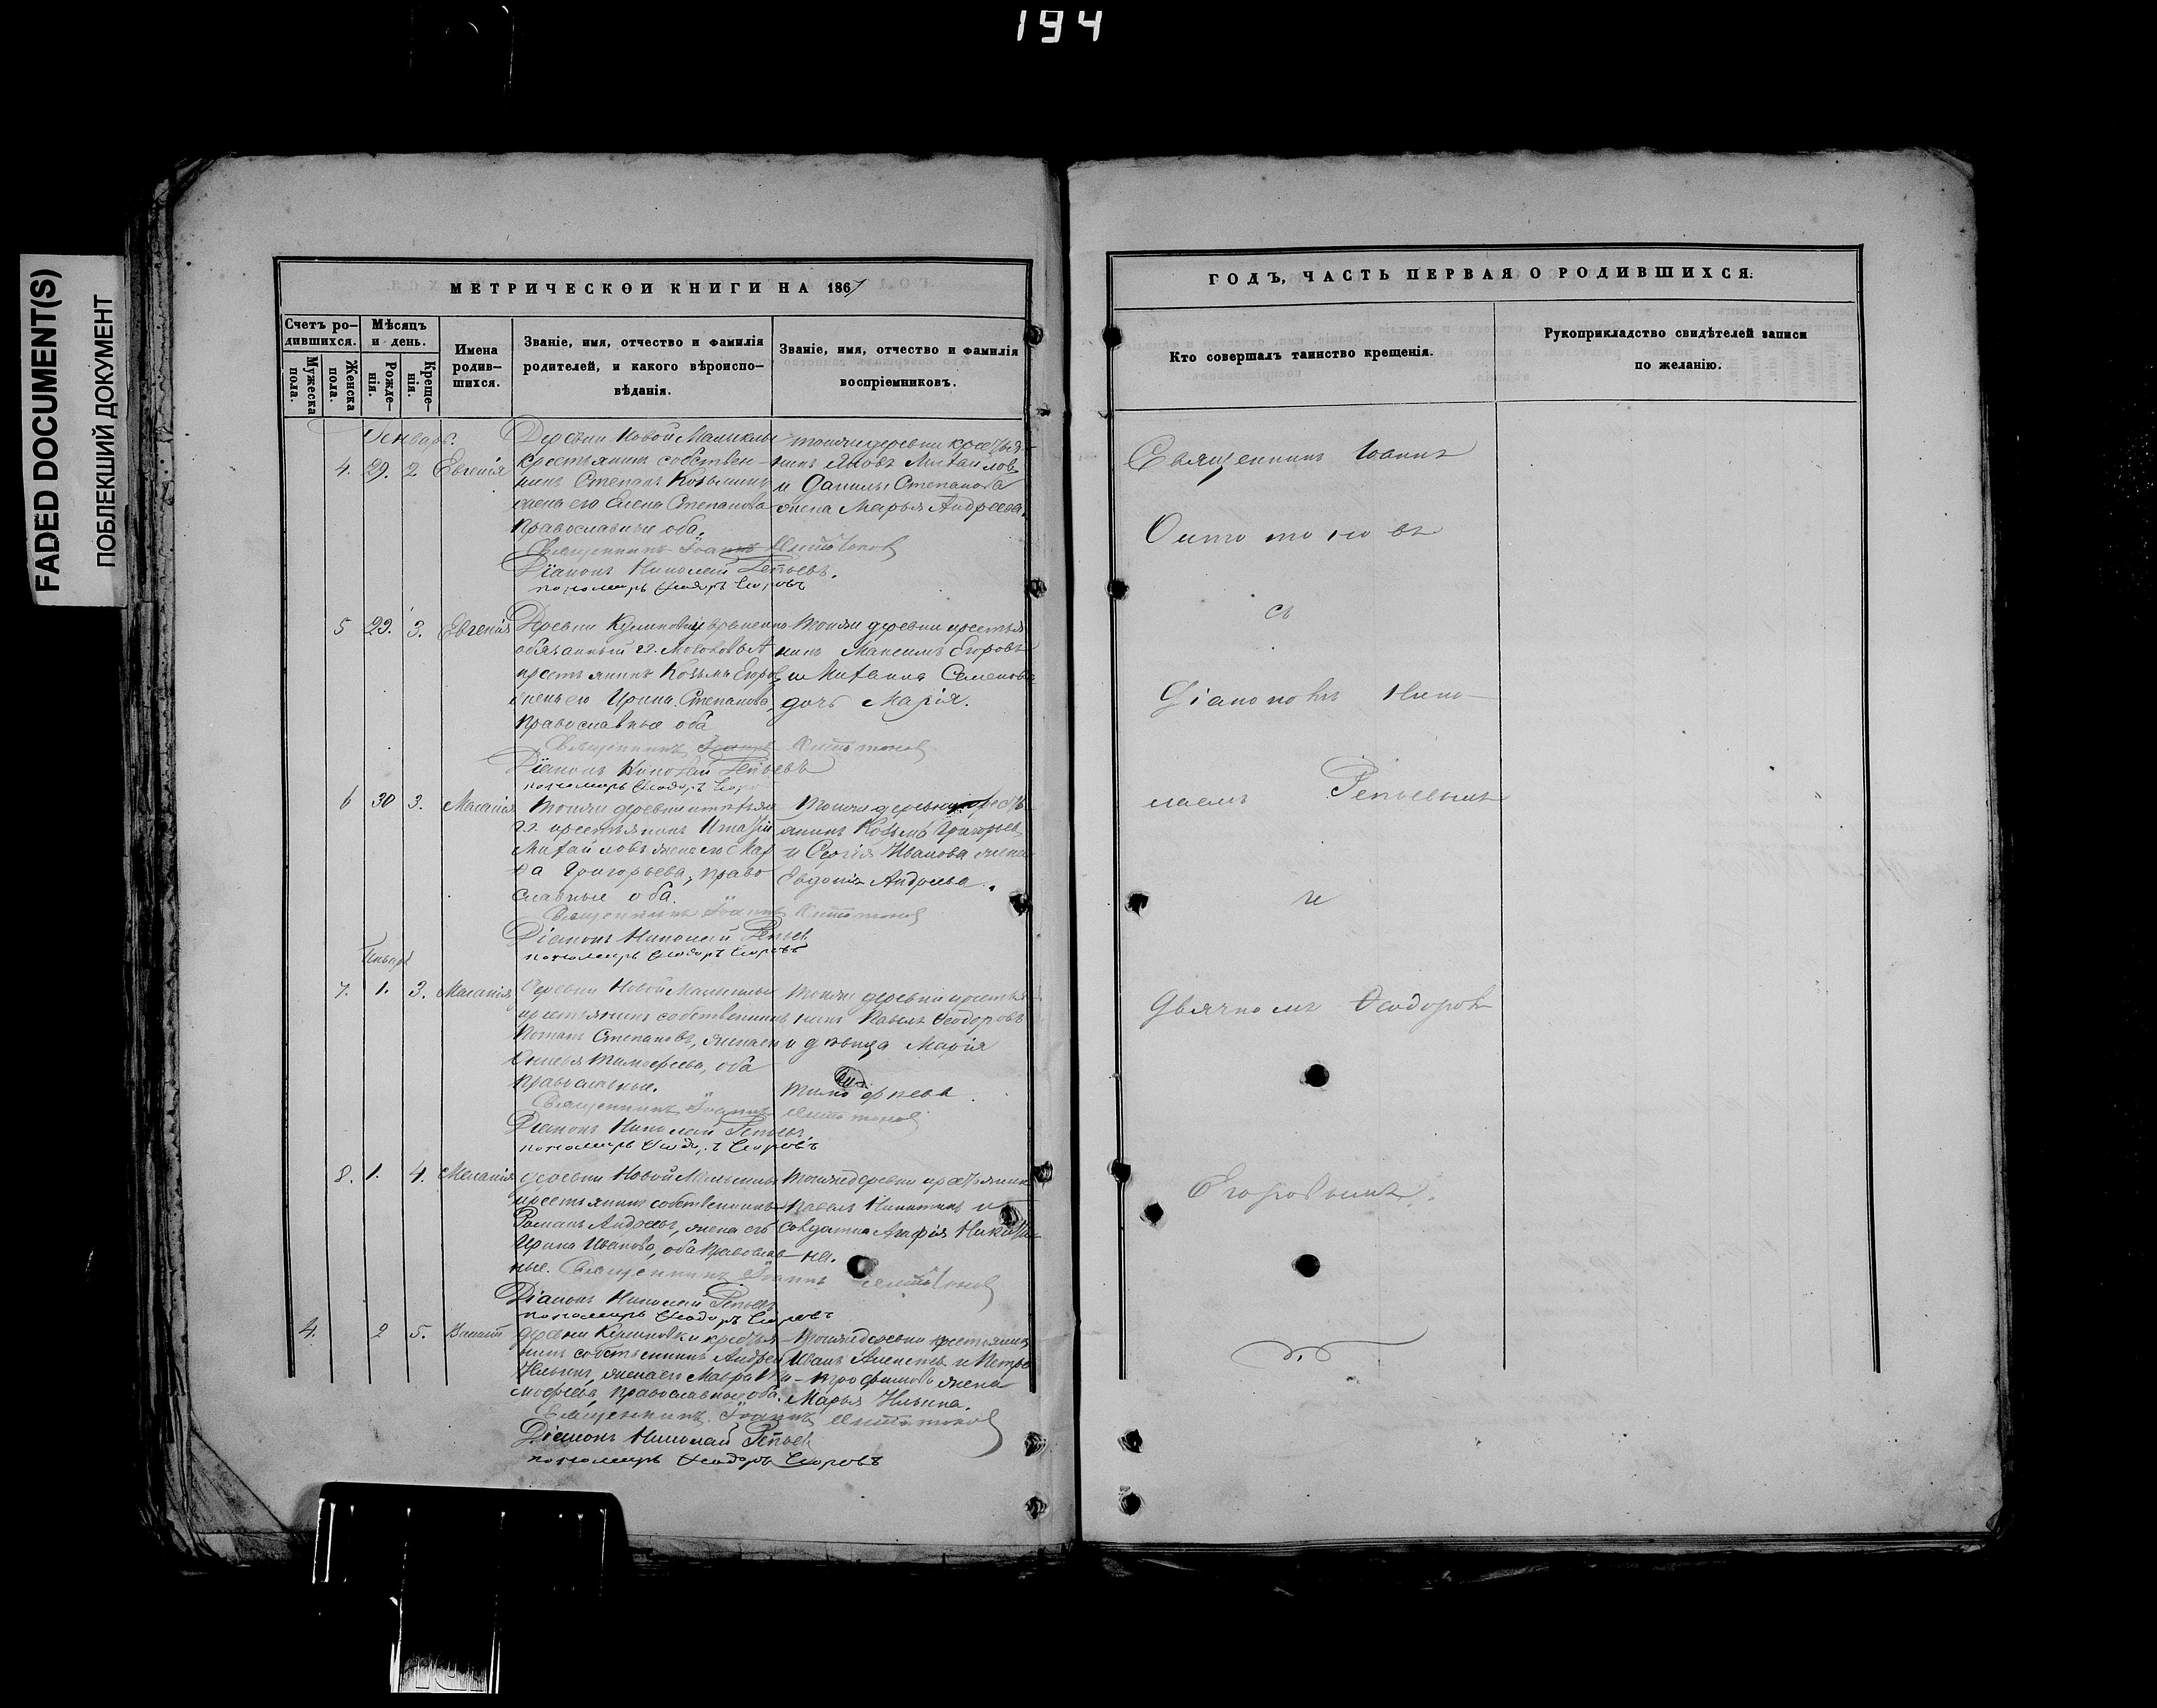 194
FADED DOCUMENT(S)
ПОБЛЕКШИЙ ДОКУМЕНТ
МЕТРИЧЕСКОЙ КНИГИ НА 1867
Счетъ ро-
дившихся.
Мужеска
пола.
Женска
пола.
Мѣсяцъ
и день.
Рожде-
нія.
Креще-
нія.
Имена
родив-
шихся.
Званіе, имя, отчество и фамилія
родителей, и какого вѣроиспо-
вѣданія.
Званіе, имя, отчество и фамилія
воспріемниковъ.
Генварь.
4. 29. 2 Евгенія
Деревни Новой Малыклы
крестьянинъ собствен-
никъ Степанъ Козьминъ
жена его Елена Степанова
православные оба.
Священникъ Іоаннъ
Діаконъ Николай Репьевъ.
пономарь Ѳеодоръ Егоровъ
тойже деревни крестья-
нинъ Яковъ Михайловъ
и Данилы Степанова
жена Марья Андреева.
5 29. 3. Евгенія
Деревни временно
обязанный гг.
крестьянинъ Козьма Егоровъ
жена его Ирина Степанова,
православные оба
Священникъ Іоаннъ
Діаконъ Николай Репьевъ
пономарь Ѳеодоръ
тойже деревни крестья
нинъ Максимъ Егоровъ
и Семенова
дочь Марія.
6 30 3. Маланія
тойже деревни
гг. крестьянинъ
Михайловъ жена его Мар
Григорьева, право
славные оба.
Священникъ Іоаннъ
Діаконъ Николай Репьев
пономарь Ѳеодоръ Егоровъ
тойже деревни кресть
янинъ Козьма Григорьев
и Сергія Иванова жена
Евдокія Андреева.
7. 1. 3. Маланія
Деревни Новой Малыклы
крестьянинъ собственникъ
Степановъ, жена его
Тимофеева, оба
православные.
Священникъ Іоаннъ
Діаконъ Николай Репьевъ
пономарь Ѳеодоръ Егоровъ
тойже деревни крестья-
нинъ Павелъ Ѳеодоровъ
и дѣвица Марія
8. 1. 4. Меланія
деревни Новой Малыклы
крестьянинъ собственникъ
Романъ Андреевъ, жена его
Ирина Иванова, оба православ-
ные. Священникъ Іоаннъ
Діаконъ Николай Репьевъ
пономарь Ѳеодоръ Егоровъ
тойже деревни крестьянинъ
Павелъ Никитинъ и
солдатка Никити-
на.
4. 2 5.
деревни крестья-
нинъ собственникъ Андрей
Ильинъ, жена его Мавра Ти-
мофеева, православные оба.
Священникъ Іоаннъ
Діаконъ Николай Репьев
пономарь Ѳеодоръ Егоровъ
тойже деревни крестьянинъ
Иванъ Алексеевъ и Петра
Трофимова жена
Марья Ильина.
ГОДЪ, ЧАСТЬ ПЕРВАЯ О РОДИВШИХСЯ.
Кто совершалъ таинство крещенія.
Рукоприкладство свидѣтелей записи
по желанію.
Священникъ Іоаннъ
съ
Діакономъ Нико-
лаемъ Репьевымъ
и
Дьячкомъ Ѳеодоромъ
Егоровымъ.